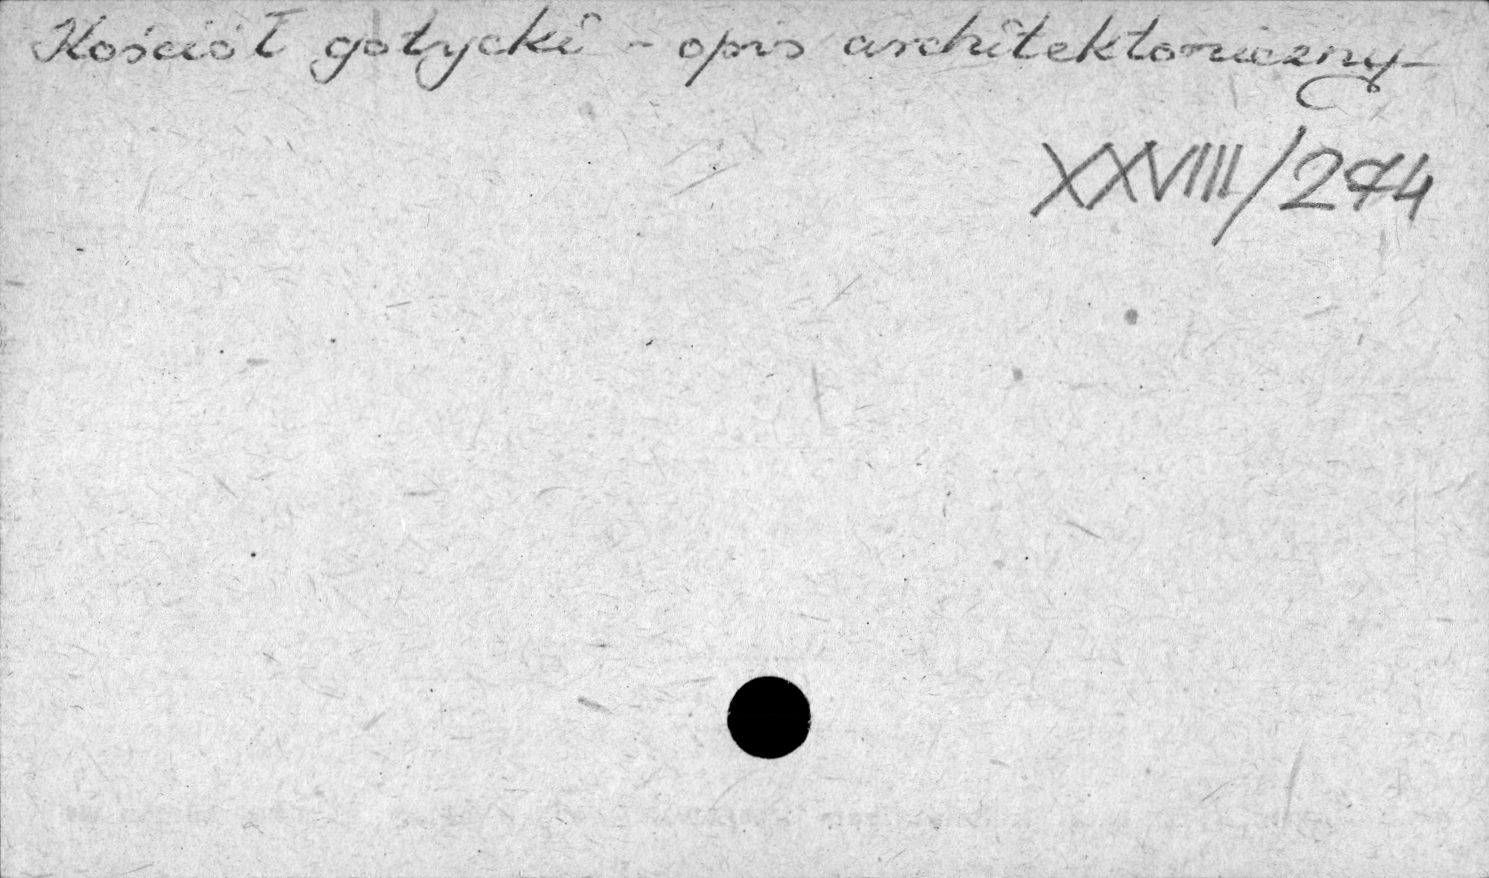 Kościół gotycki - opis architektoniczny
XXVIII/274